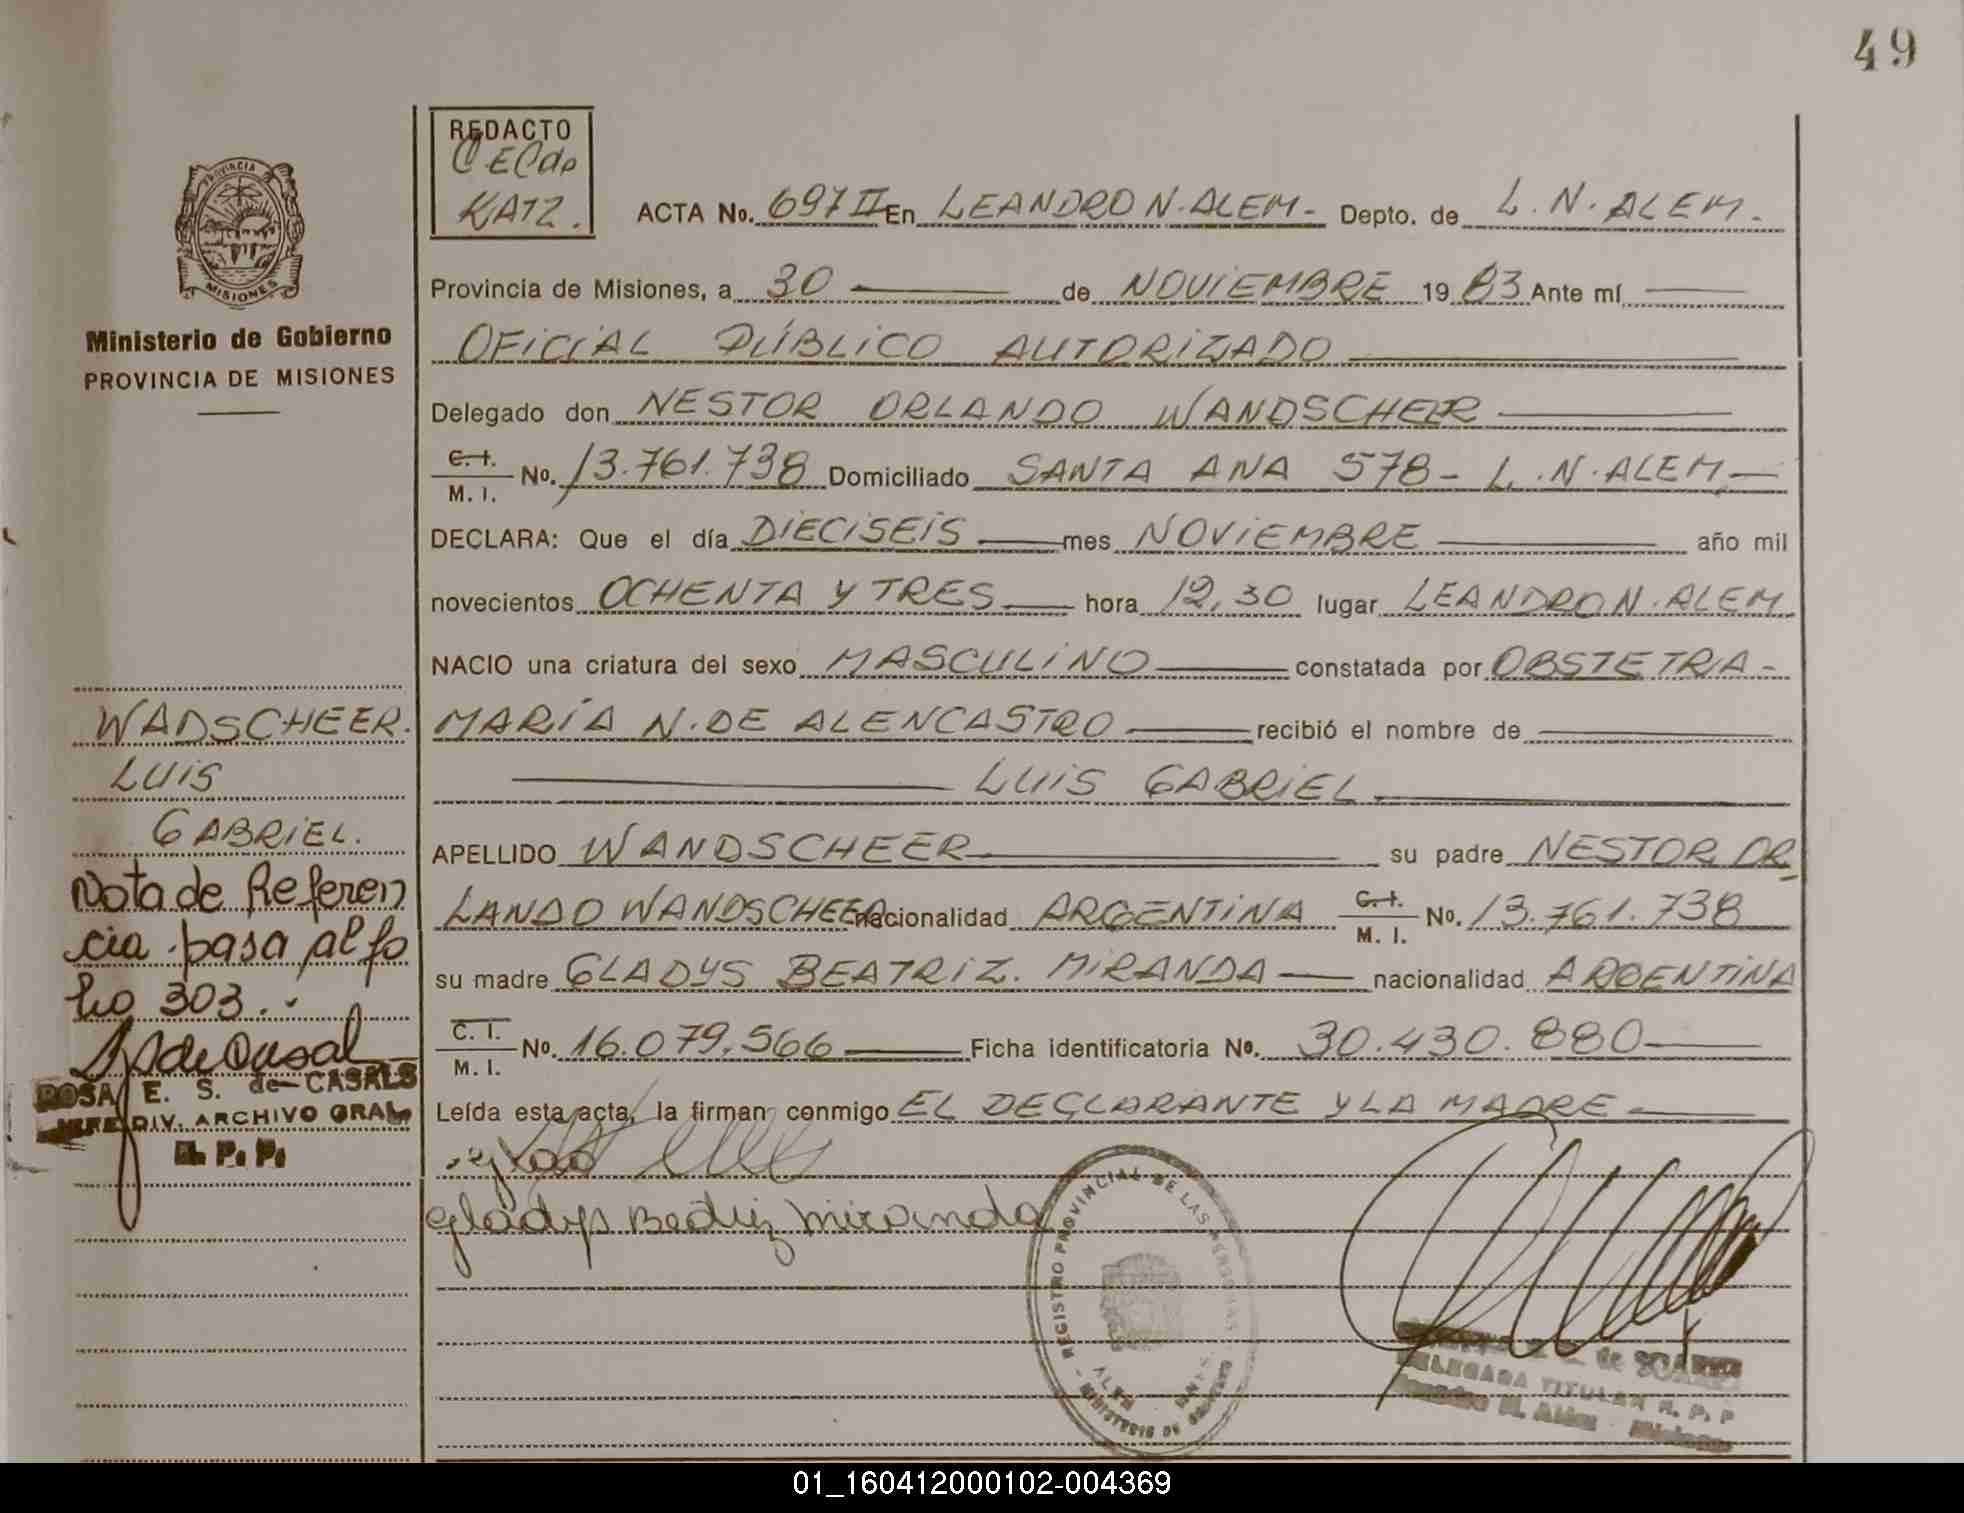 49
PROVINCIA
MISIONES
Ministerio de Gobierno
PROVINCIA DE MISIONES
REDACTO
KATZ.
ACTA No. 697 II En LEANDRO N. ALEM- Depto. de L. N. ALEM.
Provincia de Misiones, a 30 de NOVIEMBRE 1983 Ante mí
OFICIAL PÚBLICO AUTORIZADO
Delegado don NESTOR ORLANDO WANDSCHEER
C. I. M. I. No. 13.761.738 Domiciliado SANTA ANA 578- L. N. ALEM.
DECLARA: Que el día DIECISEIS mes NOVIEMBRE año mil
novecientos OCHENTA Y TRES hora 12,30 lugar LEANDRO N. ALEM
NACIO una criatura del sexo MASCULINO constatada por OBSTETRIA-
MARÍA N. DE ALENCASTRO recibió el nombre de
LUIS GABRIEL.
APELLIDO WANDSCHEER su padre NESTOR OR
LANDO WANDSCHEER nacionalidad ARGENTINA C. I. M. I. No. 13.761.738
su madre GLADYS BEATRIZ. MIRANDA nacionalidad ARGENTINA
C. I. M. I. No. 16.079.566 Ficha identificatoria No. 30.430.880
Leída esta acta, la firman conmigo EL DECLARANTE Y LA MADRE
Gladys Beatriz Miranda
WADSCHEER.
LUIS
GABRIEL.
Nota de Referen
cia pasa al fo
lio 303.
ROSA E. S. de CASALS
JEFE DIV. ARCHIVO GRAL.
R. P. P.
REGISTRO PROVINCIAL DE LAS PERSONAS
ALEM
MINISTERIO DE GOBIERNO
de SOARES
DELEGADA TITULAR R. P. P
Leandro N. Alem - Misiones
01_160412000102-004369